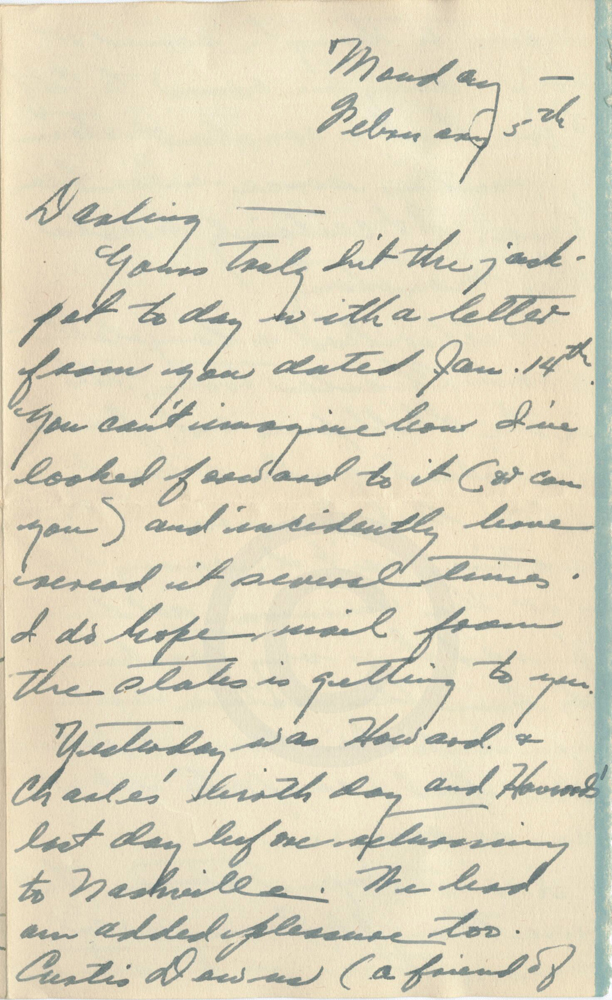 Monday —
February 5th
Darling —
Yours truly hit the jack-
pot today with a letter
from you dated Jan. 14th.
You can't imagine how I've
looked forward to it (or can
you) and incidently have
reread it several times.
I do hope mail from
the states is getting to you.
Yesterday was Howard &
Charles' birthday and Howard's
last day before returning
to Nashville. We had
an added pleasure too.
Curtis Downs (a friend of